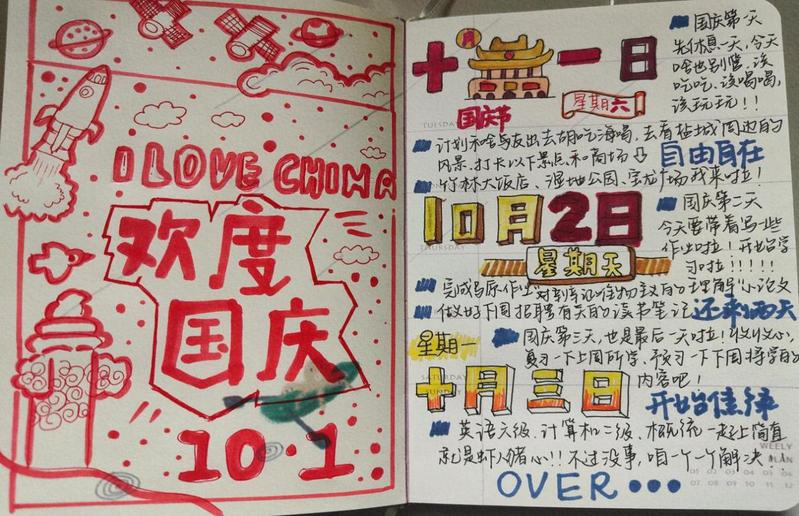 I LOVE CHINA
欢度
国庆
10·1
十月一日
国庆节
星期六
国庆第一天
先休息一天，今天
啥也别管，该
吃吃，该喝喝，
该玩玩！！
计划和啥与友出去胡吃海喝，去看盐城周边的
风景，打卡以下景点和商场
自由自在
竹林大饭店、湿地公园、宝龙广场我来啦！
10月2日
星期天
国庆第二天
今天要带着写一些
作业啦！开始学
习啦！！！！！
完成马原作业
小论文
做好下周招聘有关的读书笔记
还剩两天
星期一
国庆第三天，也是最后一天啦！收收心，
复习一下上周所学，预习一下下周将学的
内容吧！
十月三日
开始佳绩
英语六级、计算机二级、概统一起上简直
就是虾仁猪心!!不过没事，咱一个一个解决！！
OVER...
TUESDAY
THURSDAY
SATURDAY
WEEKLY
PLAN
01 02 03 04 05 06
07 08 09 10 11 12